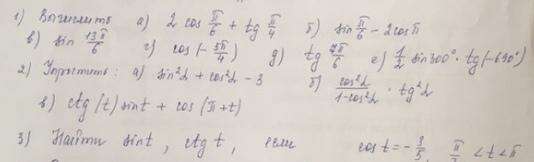 1) Вычислить а) 2 cos π/6 + tg π/4 б) sin π/6 - 2cos π
в) sin 13π/6 г) cos(-5π/4) д) tg 7π/6 е) 1/2 sin300° · tg(-690°)
2) Упростить: а) sin²α + cos²α - 3 б) cos²α/1-cos²α · tg²α
в) ctg(t) sint + cos(π+t)
3) Найти sint, ctg t, если cos t = - π/2 < t < π